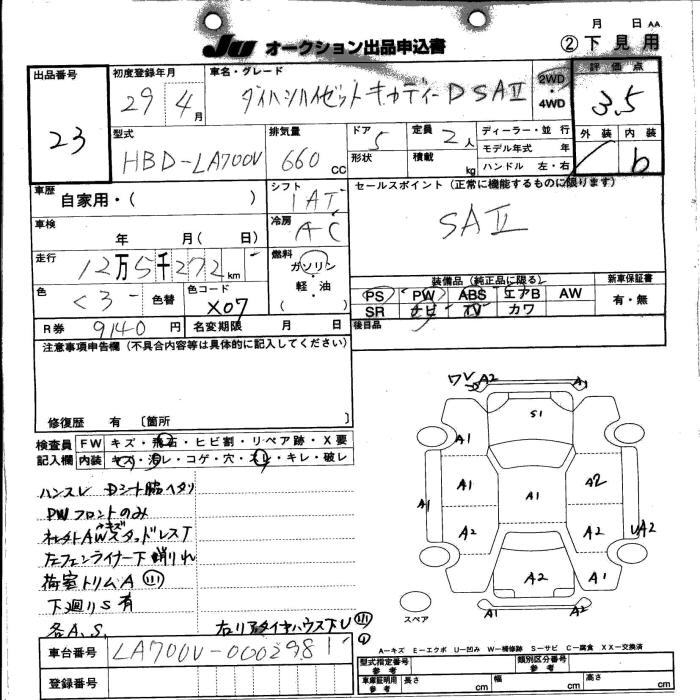 月 日 AA
JU オークション出品申込書 ② 下見用
出品番号 23
初度登録年月 29年4月
車名・グレード ダイハツハイゼットキャディーDSAⅡ
2WD・4WD
評価点 3.5
外装 内装 b
型式 HBD-LA700V
排気量 660cc
ドア 5
形状
定員 2人
積載 kg
ディーラー・並行
モデル年式 年
ハンドル 左・右
車歴 自家用・( )
シフト 1AT
セールスポイント (正常に機能するものに限ります)
SAⅡ
車検 年 月( 日)
冷房 AC
走行 12万5千272km
燃料 ガソリン・軽・油 ( )
色 クロ 色替
色コード X07
R券 9140円 名変期限 月 日
装備品 (純正品に限る) 新車保証書
PS PW ABS エアB AW
SR ナビ TV カワ
有・無
後日品
注意事項申告欄 (不具合内容等は具体的に記入してください)
修復歴 有 〔箇所 〕
検査員記入欄
FW キズ・飛石・ヒビ割・リペア跡・X要
内装 キズ・汚レ・コゲ・穴・スレ・キレ・破レ
ハンスレ Dシート脇ヘタリ
PWフロントのみ
社外AWキズスタッドレスT
左フェンライナー下削りれ
荷室トリムA
下廻りS有
各A.S.
右リアタイヤハウス下U
ワレ A2 A1
S1
A1 A1
A1 A1 A1 A2
A2 A2 UA2
A2 A1
A1 A2 A2
スペア
A−キズ E−エクボ U−凹み W−補修跡 S−サビ C−腐食 XX−交換済
車台番号 LA700V-0002981
登録番号
型式指定番号 参考
類別区分番号 参考
車庫証明用 参考 長さ cm 幅 cm 高さ cm